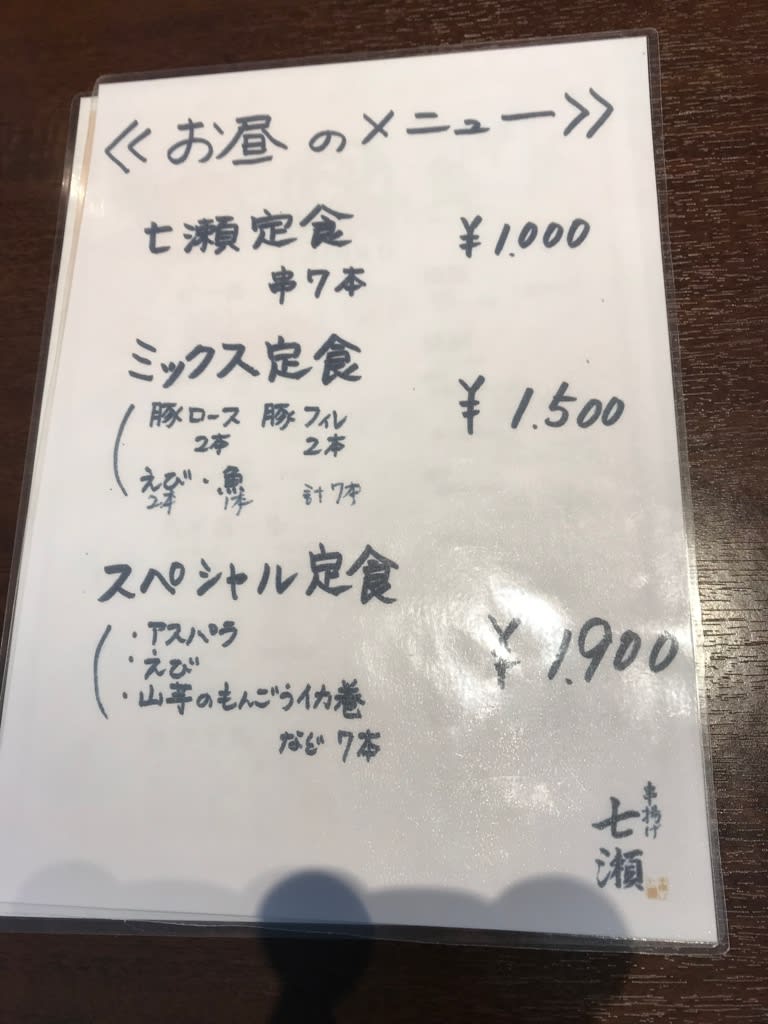 ≪お昼のメニュー≫
七瀬定食 ¥1.000
串7本
ミックス定食 ¥1.500
(豚ロース 豚フィレ
2本 2本
えび・魚 計7本
2本 1本
スペシャル定食 ¥1.900
(・アスパラ
・えび
・山芋のもんごうイカ巻
など 7本
串揚げ
七瀬